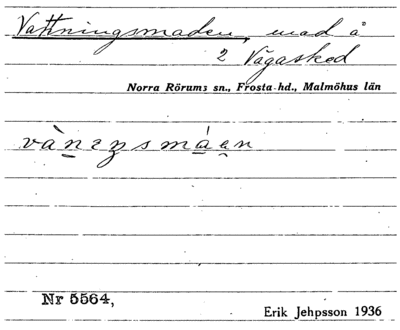 Vattningsmaden, mad å
2 Vägasked
Norra Rörums sn., Frosta hd., Malmöhus län
vànıŋsmáen
Nr 5564,
Erik Jehpsson 1936